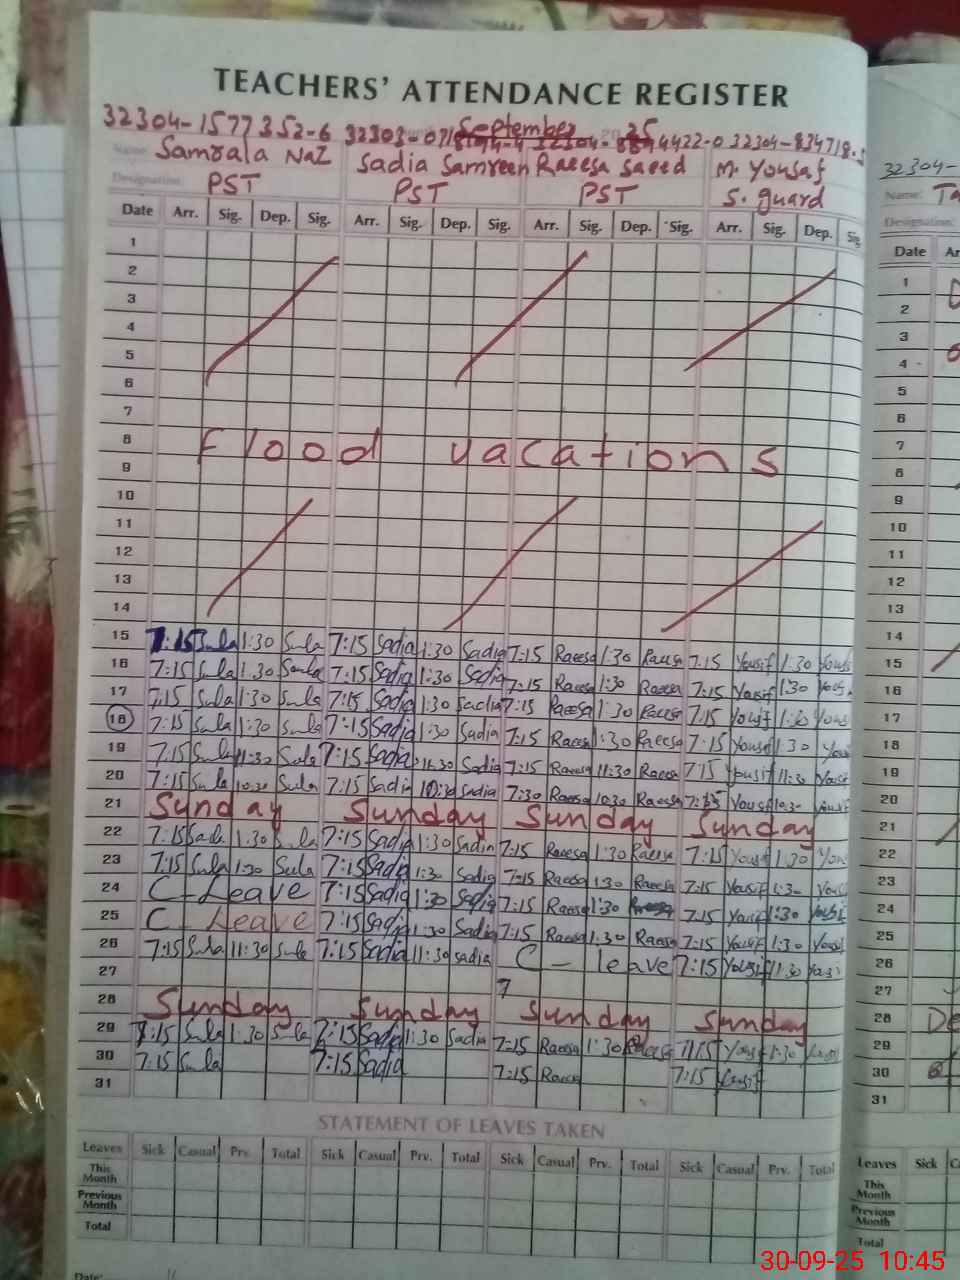 TEACHERS' ATTENDANCE REGISTER
32304-1577352-6 32303- September 25 4422-0 32304-834718-5
Name: Samrala Naz Sadia Samreen Raeesa saeed M. Yousaf
Designation: PST PST PST S. guard
Date Arr. Sig. Dep. Sig. Arr. Sig. Dep. Sig. Arr. Sig. Dep. Sig. Arr. Sig. Dep. Sig
1
2
3
4
5
6
7
8 Flood vacations
9
10
11
12
13
14
15 7:15 Sula 1:30 Sula 7:15 Sadia 1:30 Sadia 7:15 Raeesa 1:30 Raeesa 7:15 Yousif 1:30 Yousi
16 7:15 Sula 1:30 Sula 7:15 Sadia 1:30 Sadia 7:15 Raeesa 1:30 Raeesa 7:15 Yousif 1:30 Yous
17 7:15 Sula 1:30 Sula 7:15 Sadia 1:30 Sadia 7:15 Raeesa 1:30 Raeesa 7:15 Yousif 1:30 Yous
18 7:15 Sula 1:30 Sula 7:15 Sadia 1:30 Sadia 7:15 Raeesa 1:30 Raeesa 7:15 Yousif 1:30 You
19 7:15 Sula 11:30 Sula 7:15 Sadia 11:30 Sadia 7:15 Raeesa 11:30 Raeesa 7:15 Yousif 11:30 Yousif
20 7:15 Sula 10:30 Sula 7:15 Sadia 10:30 Sadia 7:30 Raeesa 10:30 Raeesa Yousif 10:30 Yousif
21 Sunday Sunday Sunday Sunday
22 7:15 Sula 1:30 Sula 7:15 Sadia 1:30 Sadia 7:15 Raeesa 1:30 Raeesa 7:15 Yousif 1:30 You
23 7:15 Sula 1:30 Sula 7:15 Sadia 1:30 Sadia 7:15 Raeesa 1:30 Raeesa 7:15 Yousif 1:30 Yous
24 C-Leave 7:15 Sadia 1:30 Sadia 7:15 Raeesa 1:30 Raeesa 7:15 Yousif 1:30 Yousi
25 C-Leave 7:15 Sadia 1:30 Sadia 7:15 Raeesa 1:30 Raeesa 7:15 Yousif 1:30 Yousi
26 7:15 Sula 11:30 Sula 7:15 Sadia 11:30 sadia C-leave 7:15 Yousif 11:30 Yousi
27 7
28 Sunday Sunday Sunday Sunday
29 7:15 Sula 1:30 Sula 7:15 Sadia 1:30 Sadia 7:15 Raeesa 1:30 Raeesa 7:15 Yousif 1:30 Yousif
30 7:15 Sula 7:15 Sadia 7:15 Raeesa 7:15 Yousif
31
STATEMENT OF LEAVES TAKEN
Leaves Sick Casual Prv. Total Sick Casual Prv. Total Sick Casual Prv. Total Sick Casual Prv. Total
This Month
Previous Month
Total
Date:
32304-
Name: Ta
Designation:
Date Ar
1
2
3
4
5
6
7
8
9
10
11
12
13
14
15
16
17
18
19
20
21
22
23
24
25
26
27
28 De
29
30
31
Leaves Sick C
This Month
Previous Month
Total
30-09-25 10:45